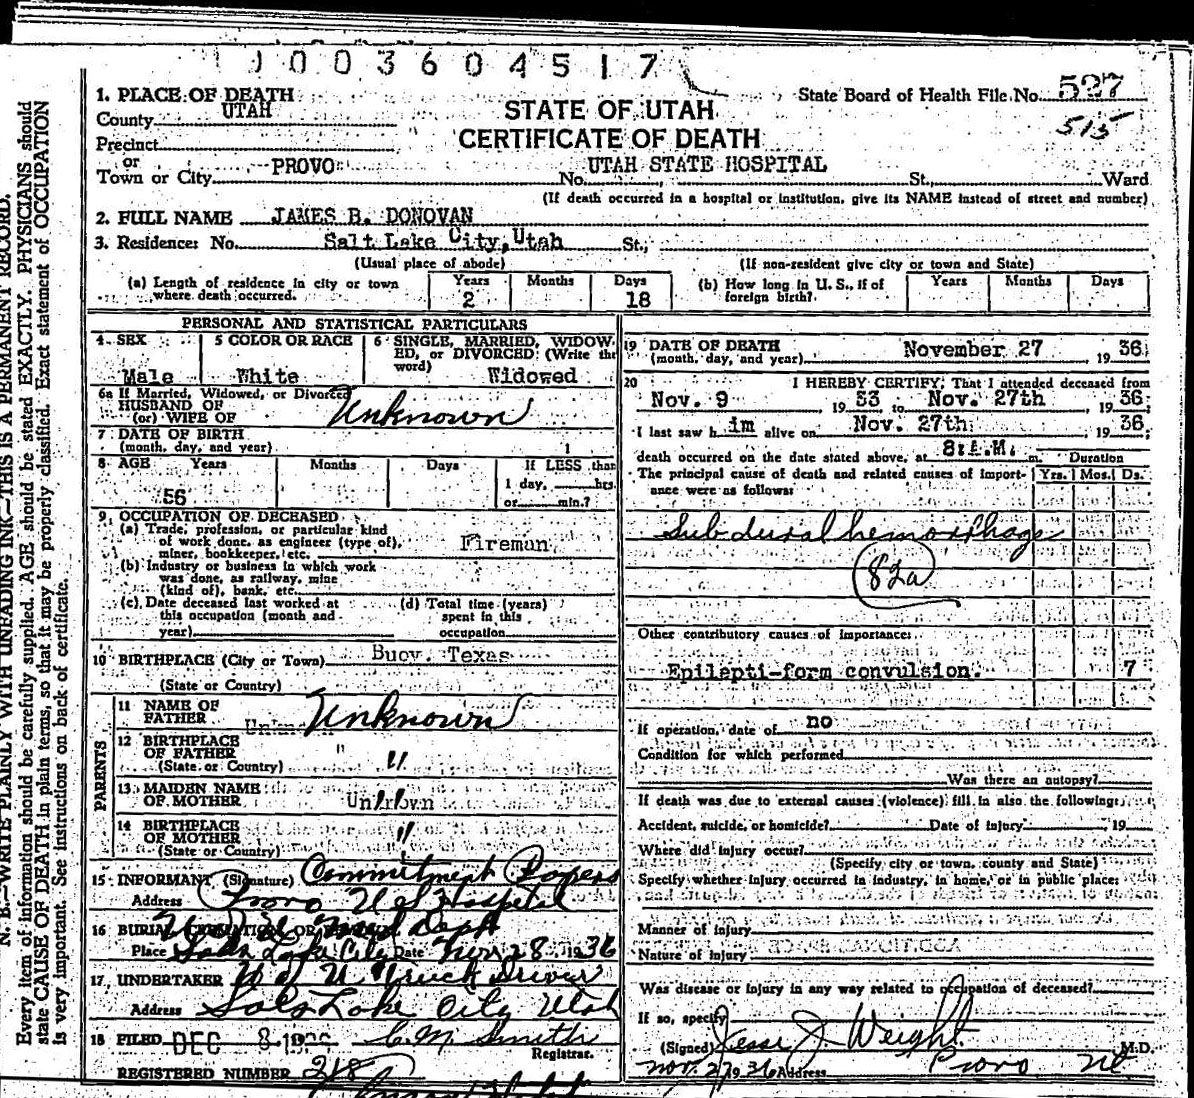 1003604517
1. PLACE OF DEATH
County UTAH
Precinct
or
Town or City PROVO
STATE OF UTAH
CERTIFICATE OF DEATH
State Board of Health File No. 527
515
UTAH STATE HOSPITAL
No. St., Ward
(If death occurred in a hospital or institution, give its NAME instead of street and number)
2. FULL NAME JAMES B. DONOVAN
3. Residence: No. Salt Lake City, Utah St.,
(Usual place of abode) (If non-resident give city or town and State)
(a) Length of residence in city or town where death occurred. Years 2 Months Days 18
(b) How long in U. S., if of foreign birth? Years Months Days
PERSONAL AND STATISTICAL PARTICULARS
4 SEX Male
5 COLOR OR RACE White
6 SINGLE, MARRIED, WIDOWED, or DIVORCED: (Write the word) Widowed
6a If Married, Widowed, or Divorced
HUSBAND OF
(or) WIFE OF Unknown
7 DATE OF BIRTH
(month, day, and year) 1
8 AGE Years 56 Months Days If LESS than
1 day, hrs.
or min.?
9. OCCUPATION OF DECEASED
(a) Trade, profession, or particular kind
of work done, as engineer (type of),
miner, bookkeeper, etc. Fireman
(b) Industry or business in which work
was done, as railway, mine
(kind of), bank, etc.
(c) Date deceased last worked at
this occupation (month and
year)
(d) Total time (years)
spent in this
occupation
10 BIRTHPLACE (City or Town) Texas
(State or Country)
PARENTS
11 NAME OF
FATHER Unknown
12 BIRTHPLACE
OF FATHER "
(State or Country)
13 MAIDEN NAME
OF MOTHER Unknown
14 BIRTHPLACE
OF MOTHER "
(State or Country)
15 INFORMANT (Signature) Commitment Papers
Address Provo U S Hospital
16 BURIAL, CREMATION OR U of U Med Dept
Place Salt Lake City Date Nov 28 1936
17. UNDERTAKER U of U Truck Driver
Address Salt Lake City Utah
18 FILED DEC 8 1936 C. M. Smith
Registrar.
REGISTERED NUMBER 218
19 DATE OF DEATH
(month, day, and year) November 27, 1936
20 I HEREBY CERTIFY, That I attended deceased from
Nov. 9 1933 to Nov. 27th, 1936;
I last saw him alive on Nov. 27th, 1936;
death occurred on the date stated above, at 8:A.M. m. Duration
The principal cause of death and related causes of importance were as follows: Yrs. Mos. Ds.
Subdural hemorrhage
82a
Other contributory causes of importance:
Epilepti-form convulsion. 7
If operation, date of no
Condition for which performed
Was there an autopsy?
If death was due to external causes (violence) fill in also the following:
Accident, suicide, or homicide? Date of injury , 19
Where did injury occur?
(Specify city or town, county and State)
Specify whether injury occurred in industry, in home, or in public place:
Manner of injury
Nature of injury
Was disease or injury in any way related to occupation of deceased?
If so, specify
(Signed) Jesse J. Weight M.D.
Nov. 27 1936 Address Provo Ut
N. B.—WRITE PLAINLY WITH UNFADING INK—THIS IS A PERMANENT RECORD.
Every item of information should be carefully supplied. AGE should be stated EXACTLY. PHYSICIANS should
state CAUSE OF DEATH in plain terms, so that it may be properly classified. Exact statement of OCCUPATION
is very important. See instructions on back of certificate.